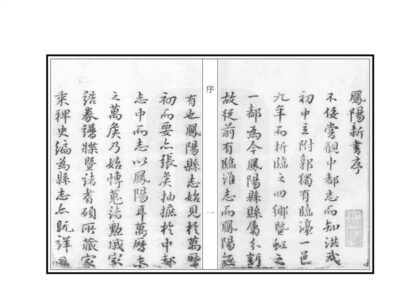 鳳陽新書序
不佞嘗觀中都志而知洪武
初中立附郭獨有臨濠一邑
九年而析臨之四鄉暨虹之
一都為今鳳陽縣縣屬分新
故從前有臨淮志而鳳陽無
序
一
有也鳳陽縣志始見於萬曆
初而要亦張矦抽據於中都
志中而志以鳳陽耳萬曆季
之萬矦乃始博蒐諸勲戚家
誥券譜牒暨諸耆碩所藏家
乘稗史編為縣志亦既詳